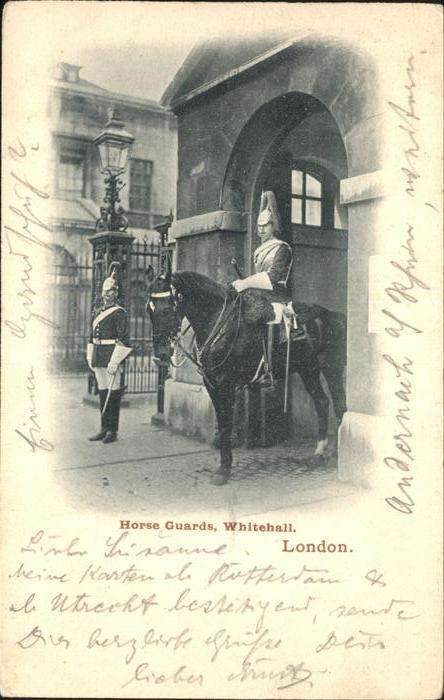 Horse Guards, Whitehall.
London.
Liebe Susanne.
Meine Karten ab Rotterdam &
ab Utrecht bestätigend, sende
Dir herzliche Grüße Dein
lieber Ernst
Andernach a/ Rhein,